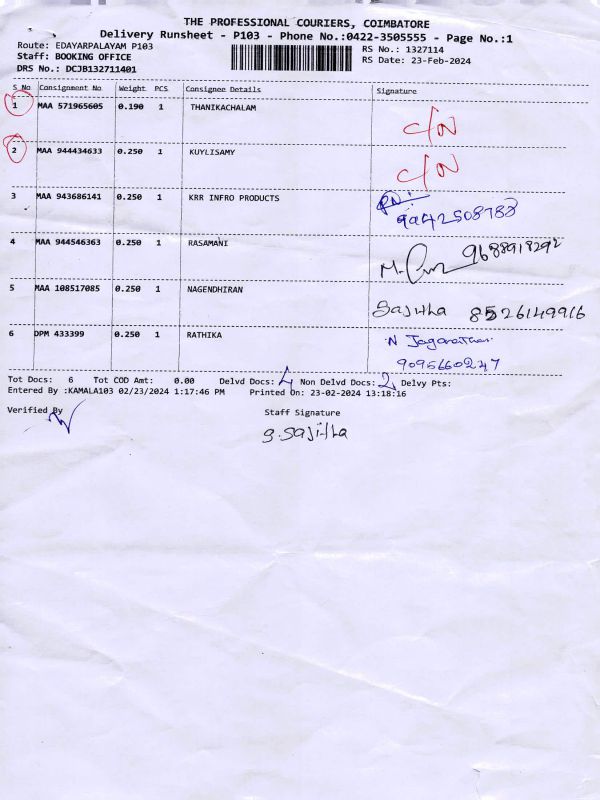 THE PROFESSIONAL COURIERS, COIMBATORE
Delivery Runsheet - P103 - Phone No.:0422-3505555 - Page No.:1
Route: EDAYARPALAYAM P103
Staff: BOOKING OFFICE
DRS No.: DCJB132711401
RS No.: 1327114
RS Date: 23-Feb-2024
S No Consignment No Weight PCS Consignee Details Signature
1 MAA 571965605 0.190 1 THANIKACHALAM C/N
2 MAA 944434633 0.250 1 KUYLISAMY C/N
3 MAA 943686141 0.250 1 KRR INFRO PRODUCTS
9942508788
4 MAA 944546363 0.250 1 RASAMANI 9688918292
5 MAA 108517085 0.250 1 NAGENDHIRAN Sajitha 8526149916
6 DPM 433399 0.250 1 RATHIKA N Jaganathan
9095660247
Tot Docs: 6 Tot COD Amt: 0.00 Delvd Docs: 4 Non Delvd Docs: 2 Delvy Pts:
Entered By :KAMALA103 02/23/2024 1:17:46 PM Printed On: 23-02-2024 13:18:16
Verified By Staff Signature
S. Sajitha